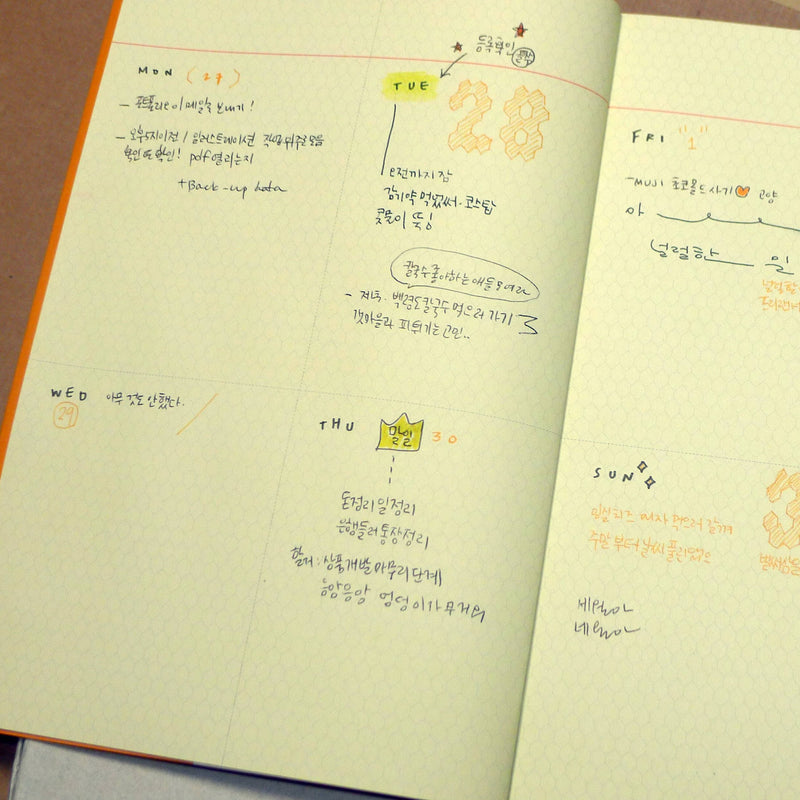 MON (27)
- 포트폴리오 이메일로 보내기!
- 오후5시이전 / 일러스트레이션
확인 또 확인! pdf 열리는지
+Back-up data
등록확인
TUE 28
오전까지 잠
감기약 먹었써. 코스탑
콧물이 뚝!
칼국수 좋아하는 애들 모여라
- 저녁. 백령도칼국수 먹으러 가기
갯마을과 피튀기는 고민..
WED 아무것도 안했다.
29
THU 말일 30
돈정리 일정리
은행들러 통장정리
할거 : 상품개발 마무리 단계
응앙응앙 엉덩이가 무거워
FRI "1"
-MUJI 초코몰드 사기 고양
아
널럴한 일
널럴한
SUN
임실치즈 피자 먹으러 갈꺼
주말부터 날씨 풀린댔으
3
세월아
네월아